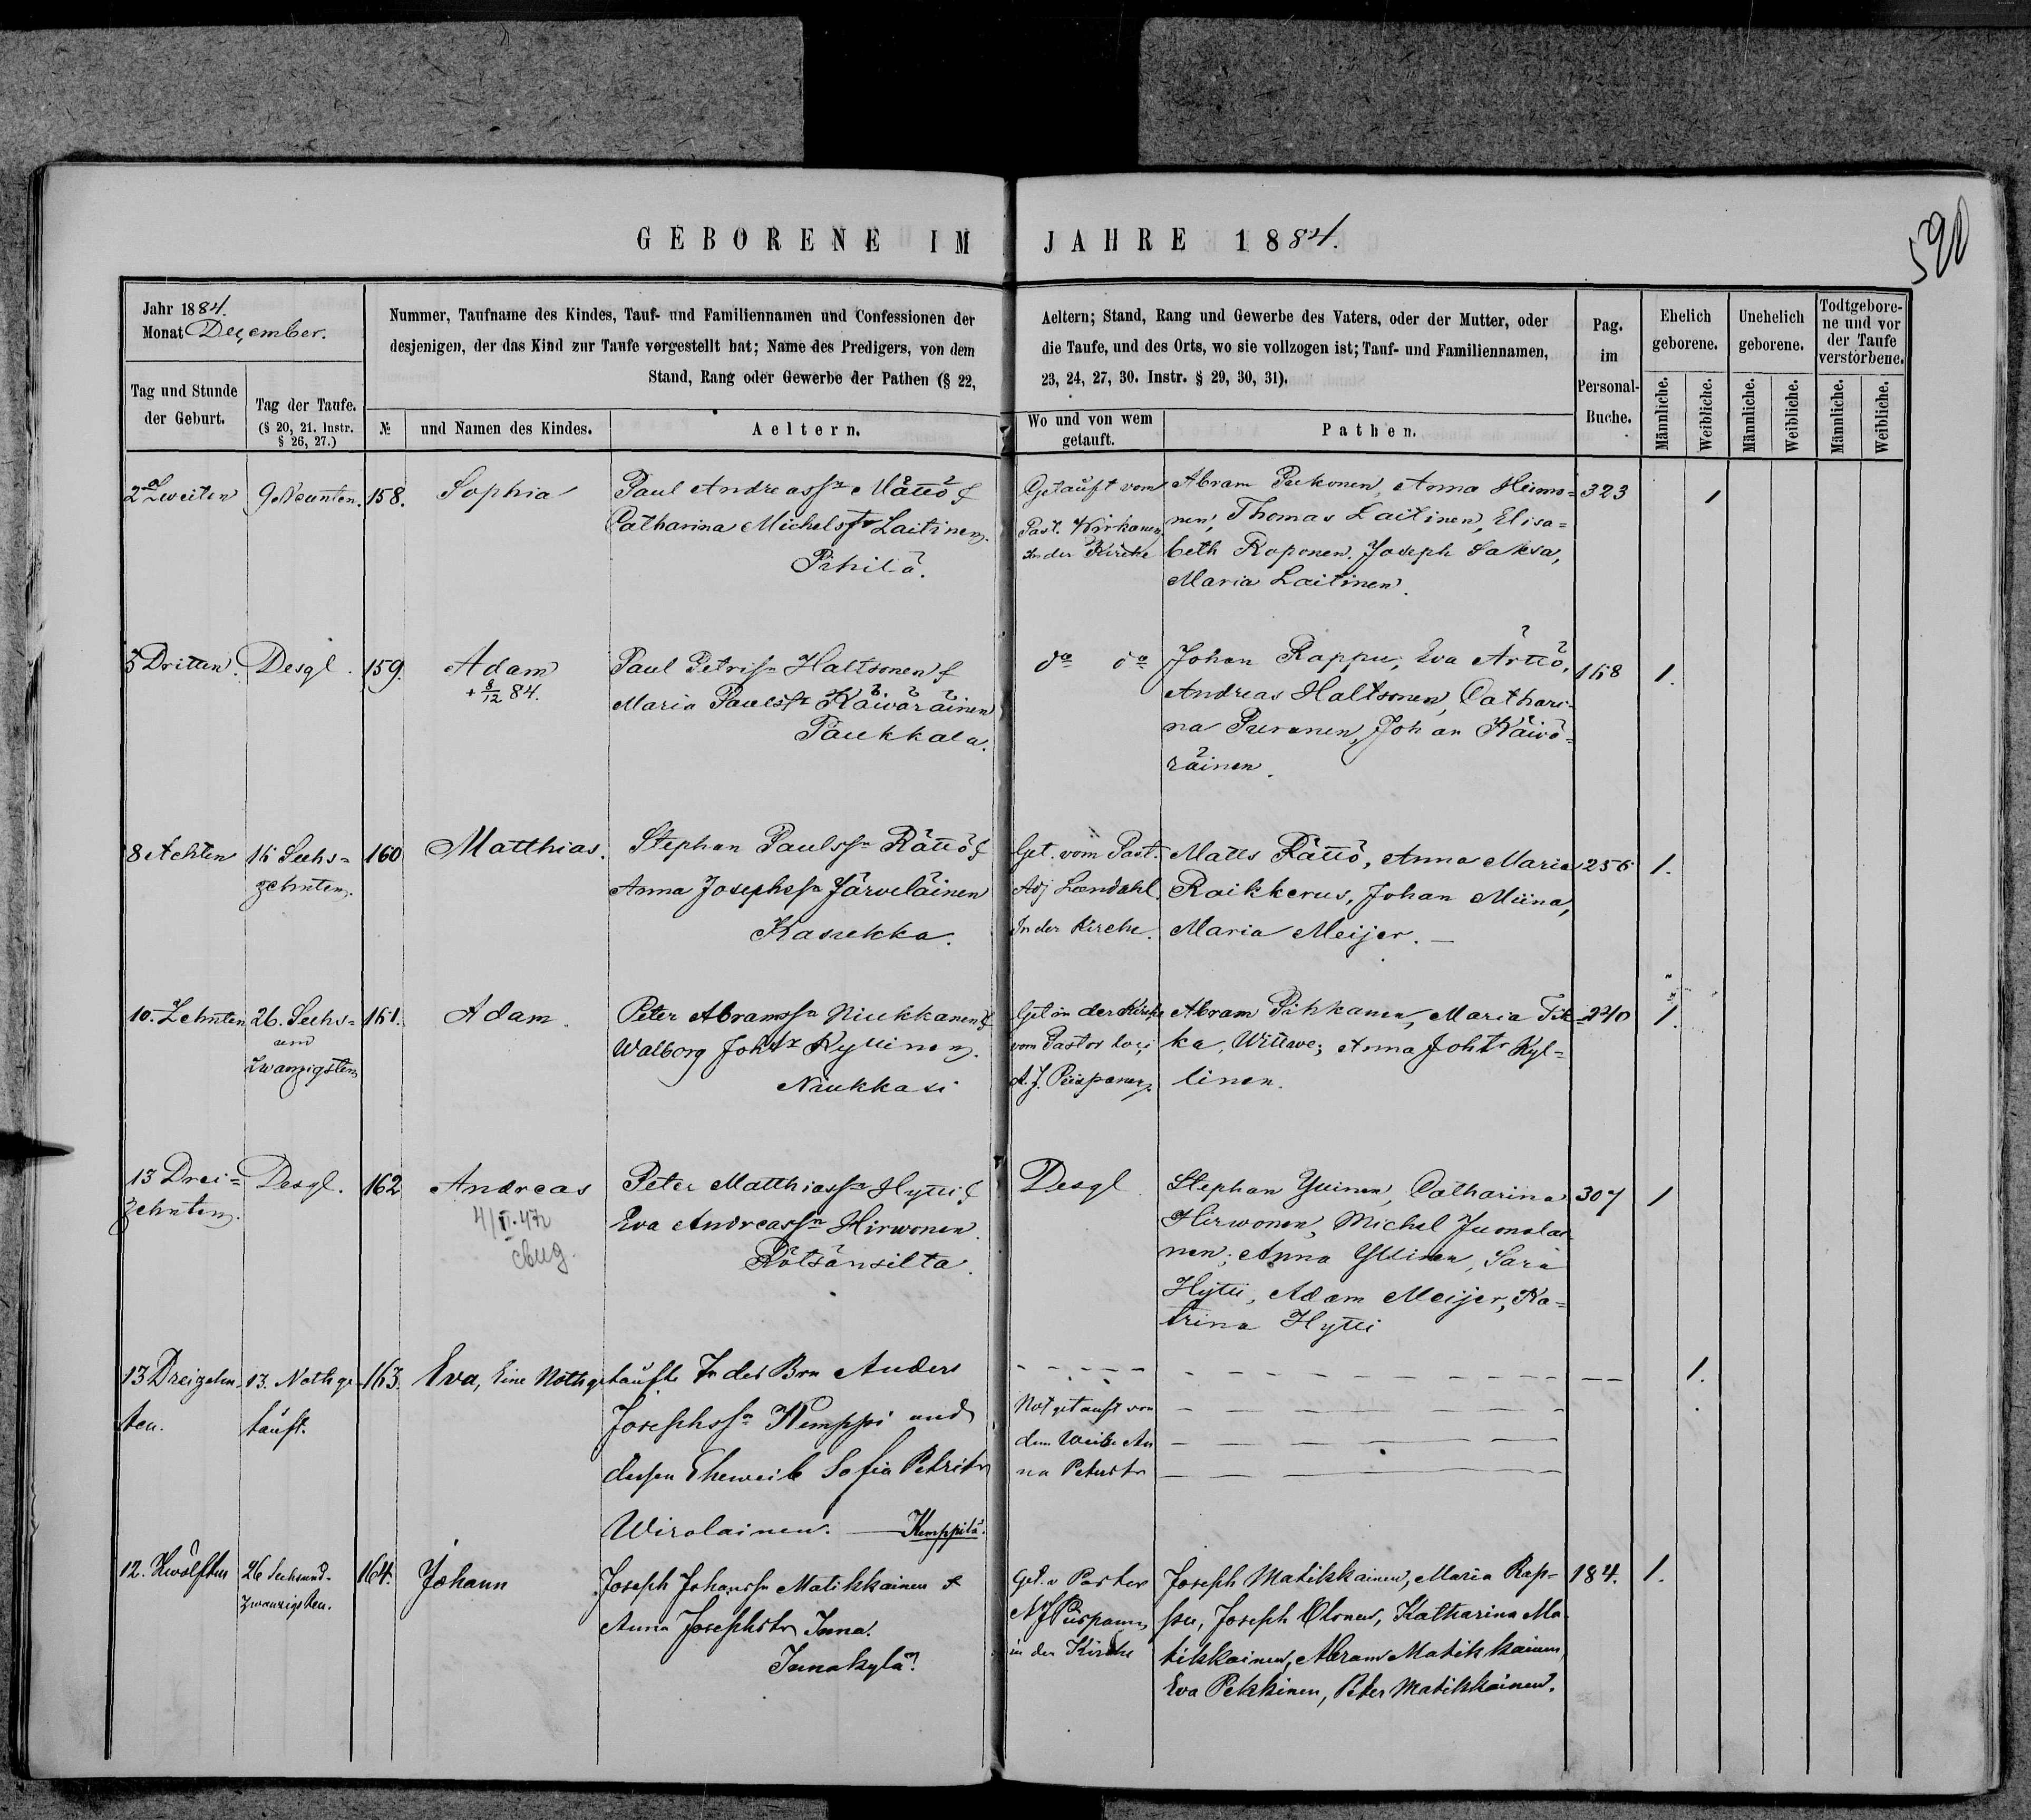 GEBORENE IM JAHRE 1884.
590
Jahr 1884.
Monat December.
Tag und Stunde
der Geburt.
Tag der Taufe.
(§ 20, 21. Instr.
§ 26, 27.)
Nummer, Taufname des Kindes, Tauf- und Familiennamen und Confessionen der
desjenigen, der das Kind zur Taufe vorgestellt hat; Name des Predigers, von dem
Stand, Rang oder Gewerbe der Pathen (§ 22,
№
und Namen des Kindes.
Aeltern.
Aeltern; Stand, Rang und Gewerbe des Vaters, oder der Mutter, oder
die Taufe, und des Orts, wo sie vollzogen ist; Tauf- und Familiennamen,
23, 24, 27, 30. Instr. § 29, 30, 31).
Wo und von wem
getauft.
Pathen.
Pag.
im
Personal-
Buche.
Ehelich
geborene.
Unehelich
geborene.
Todtgebore-
ne und vor
der Taufe
verstorbene.
Männliche.
Weibliche.
Männliche.
Weibliche.
Männliche.
Weibliche.
2 Zweiten
9 Neunten.
158.
Sophia
Paul Andreassn Mättö &
Catharina Michelstr Laitinen.
Pihilä.
Getauft vom
Past. Wirkanen
In der Kirche
Abram Pukonen, Anna Heimo=
nen, Thomas Laitinen, Elisa=
beth Roponen. Joseph Saksa,
Maria Laitinen.
323
1
3 Dritten.
Desgl.
159.
Adam
+ 8/12 84.
Paul Petrisn Haltsonen &
Maria Paulstr Käiväräinen
Paukkala.
do do
Johan Rappu, Eva Ärttö,
Andreas Haltsonen, Cathari=
na Puranen, Johan Käivä=
räinen.
168
1.
8 Achten
16 Sechs=
zehnten.
160
Matthias.
Stephan Paulssn Rättö &
Anna Josephssn Järveläinen
Kasukka.
Get. vom Past.
Adj Landahl.
In der Kirche.
Matts Rättö, Anna Maria
Raikkerus, Johan Miina,
Maria Meijer. —
256
1.
10. Zehnten
26. Sechs=
und
Zwanzigsten
161.
Adam.
Peter Abramssn Niukkanen &
Walborg Johstr Kyllinen.
Niukkasi
Get in der Kirche
vom Pastor loci
A. J. Piispanen.
Abram Pihkanen, Maria Tik=
ka, Wittwe; Anna Johtr Kyl=
linen.
240
1.
13 Drei=
zehnten.
Desgl.
162
Andreas
Peter Matthiassn Hytti &
Eva Andreassn Hirwonen.
Rötsänsilta.
Desgl
Stephan Yllinen, Catharina
Hirwonen, Michel Juonolai
nen; Anna Yllinen, Sara
Hytti, Adam Meijer, Ka=
trina Hytti
307
1
13 Dreizehn-
ten.
13. Nothge-
tauft.
163.
Eva, Eine Nothgetaufte Tr des Brn Anders
Josephssn Kemppi und
dessen Eheweib Sofia Petristr
Wirolainen. — Kemppilä.
Notgetauft von
dem Weibe An
na Peterstr
1.
12. Zwölften
26 Sechsund-
zwanzigsten.
164.
Johann
Joseph Johanssn Matikkainen &
Anna Josephstr Inna.
Innakylä.
Get. v Pastor
A J Piispanen
in der Kirche
Joseph Matikkainen, Maria Rap=
pu, Joseph Olonen, Katharina Ma-
tikkainen, Abram Matikkainen,
Eva Pekkinen, Peter Matikkainen.
184.
1.